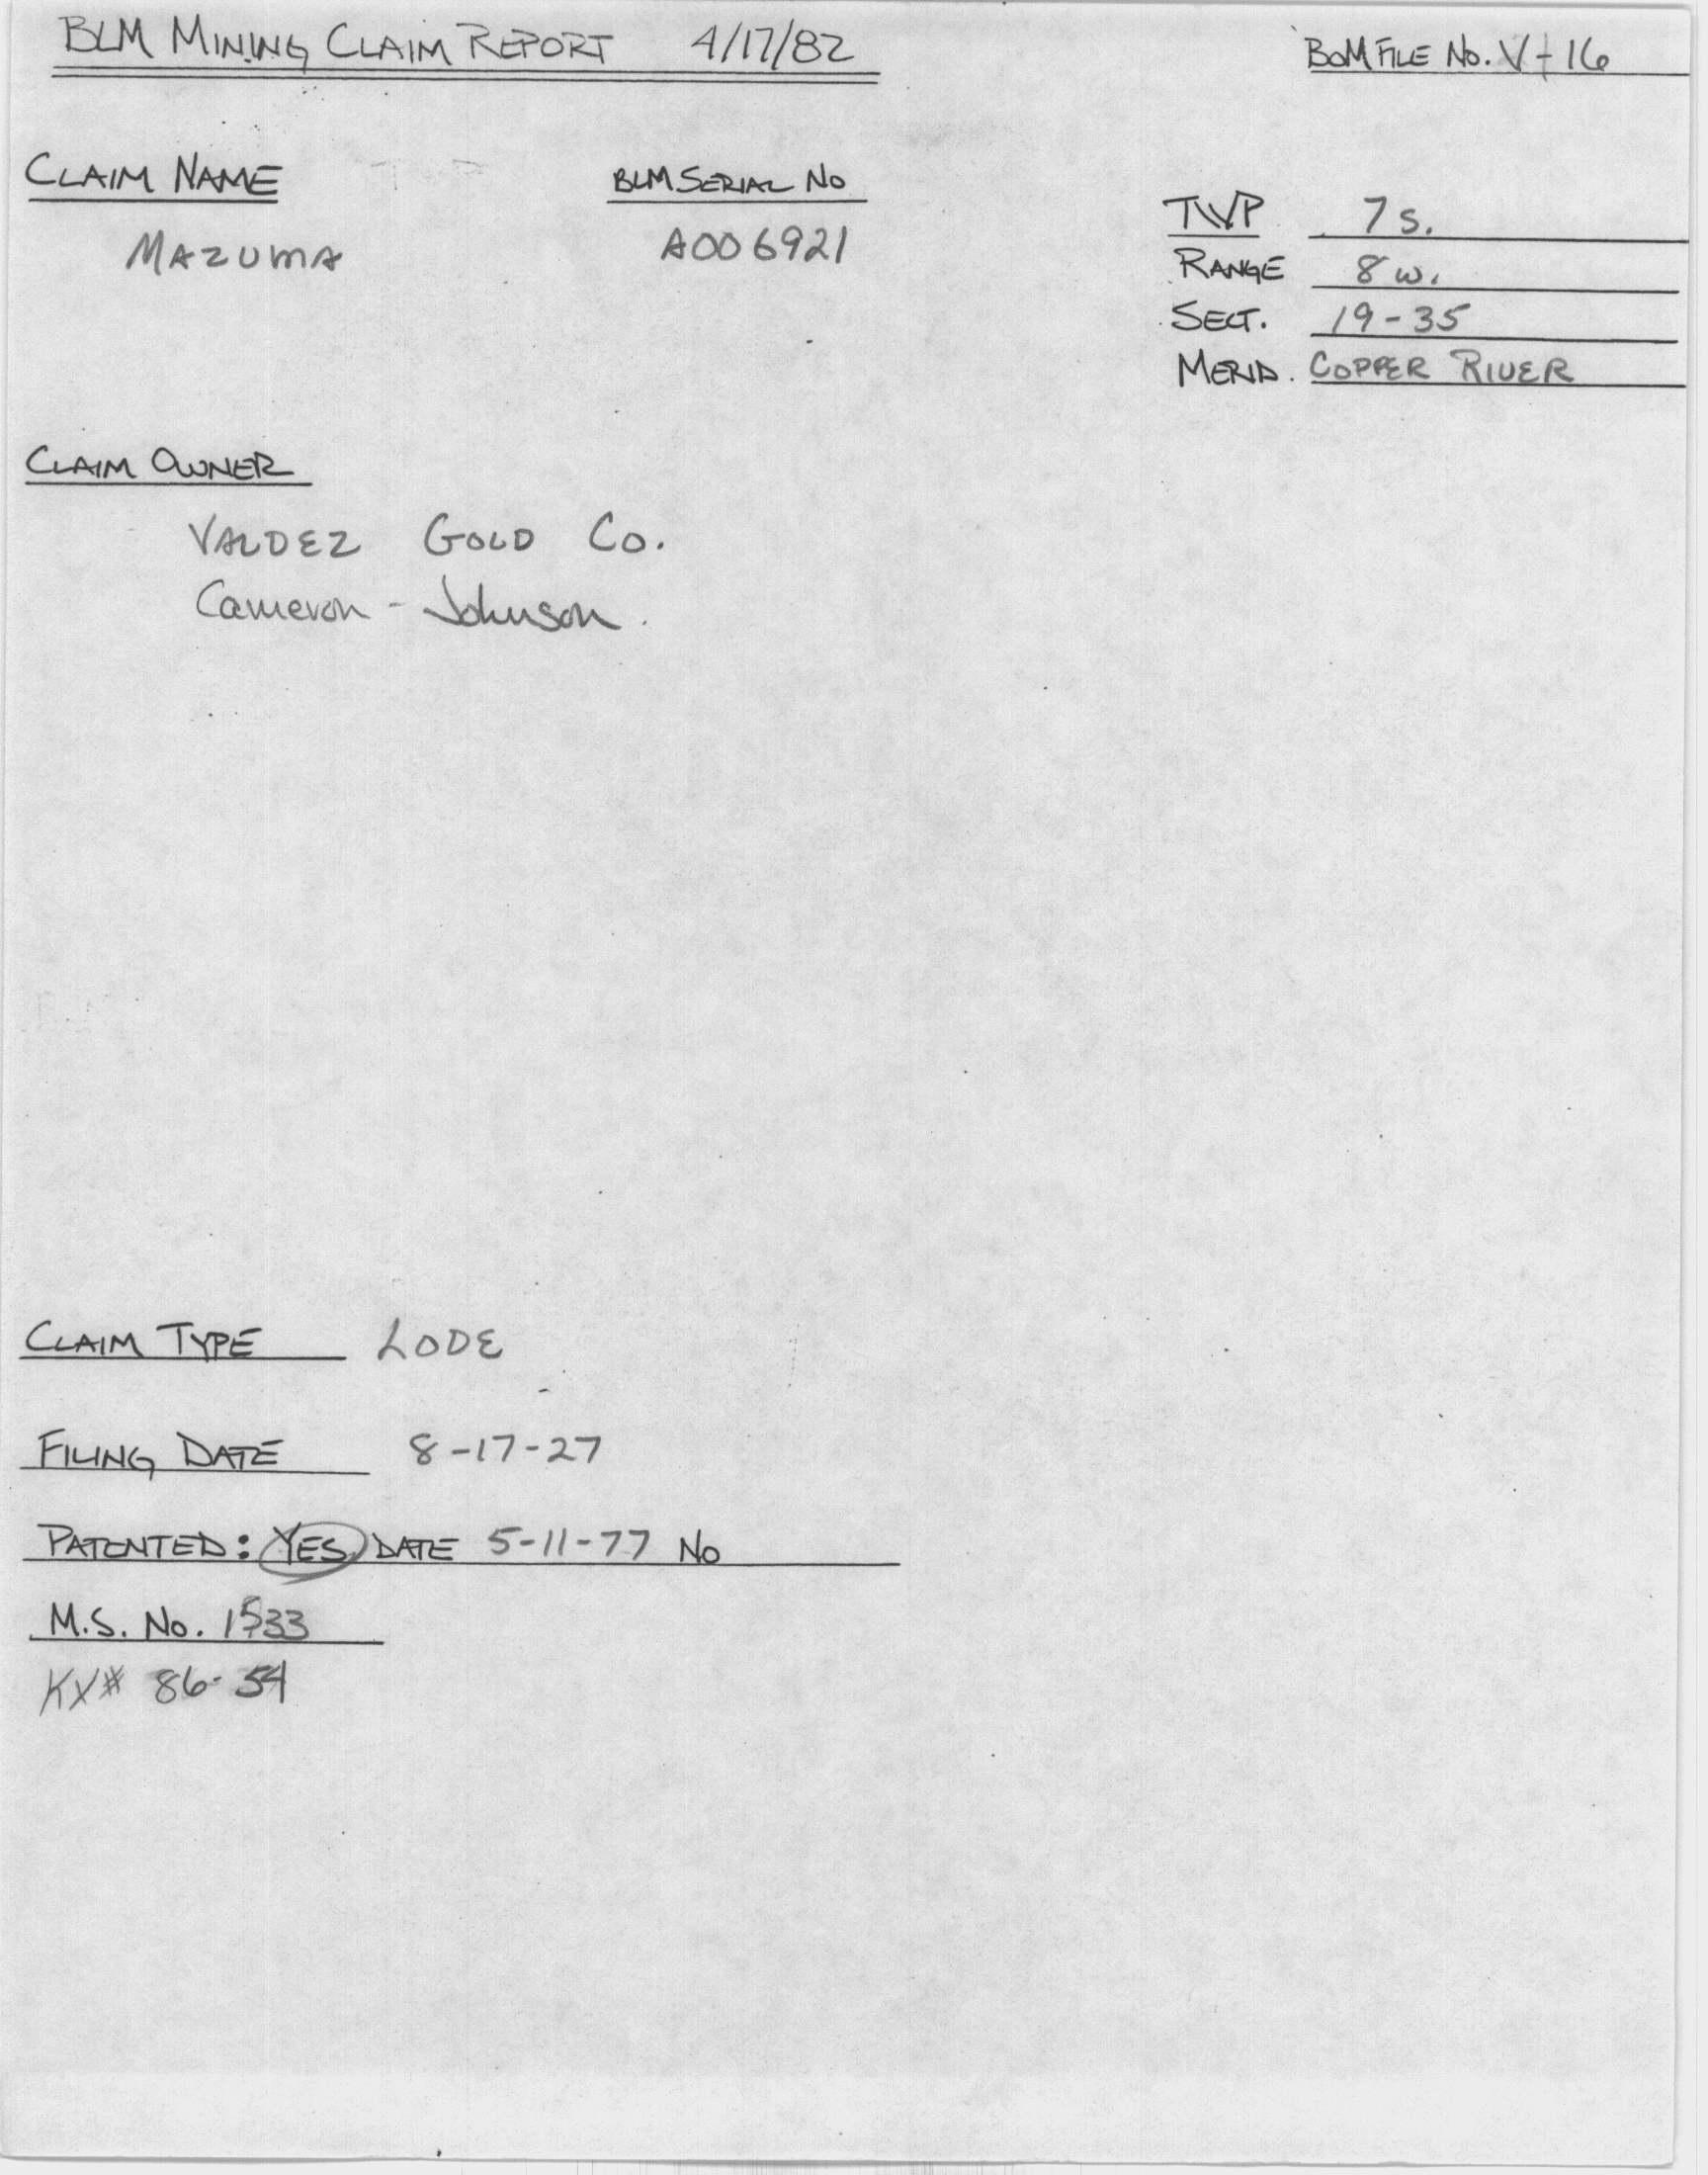 BLM MINING CLAIM REPORT 4/17/82
BOM FILE No. V-16
CLAIM NAME
BLM SERIAL No
MAZUMA
A006921
TWP 7 S.
RANGE 8 W.
SECT. 19-35
MERID. COPPER RIVER
CLAIM OWNER
VALDEZ GOLD CO.
Cameron - Johnson.
CLAIM TYPE LODE
FILING DATE 8-17-27
PATENTED: YES DATE 5-11-77 No
M.S. No. 1533
KX# 86-54